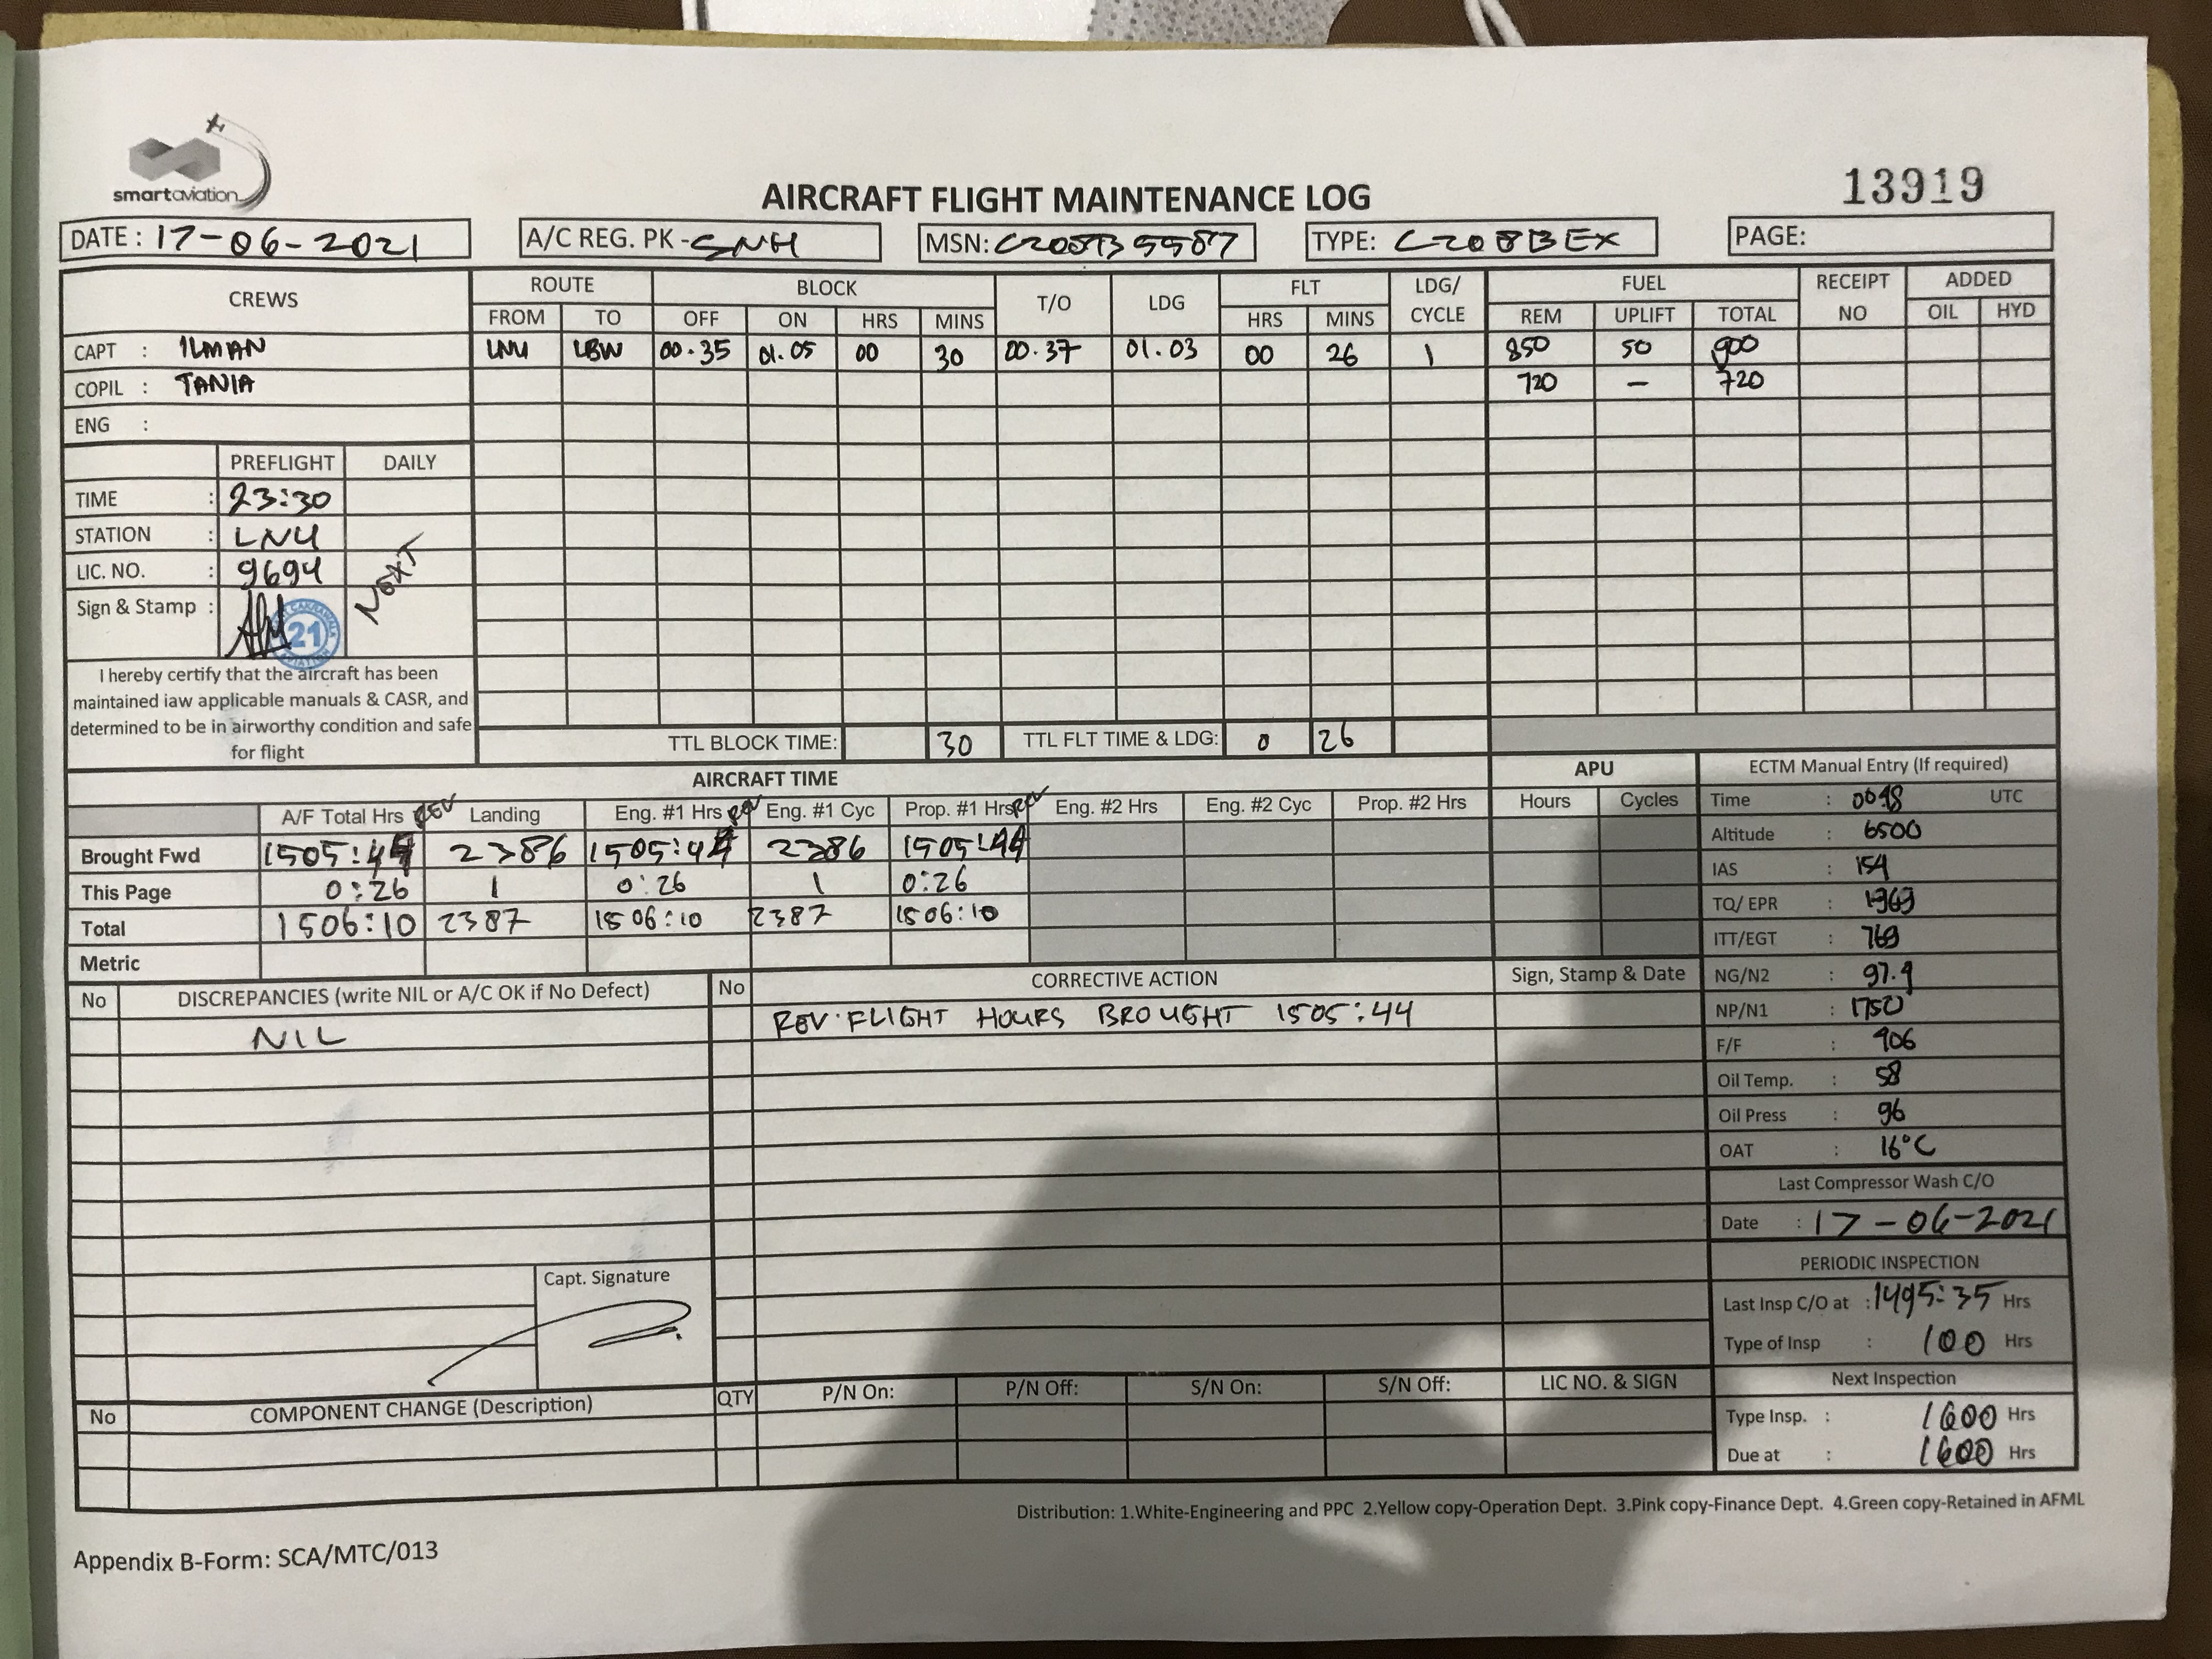 smartaviation
AIRCRAFT FLIGHT MAINTENANCE LOG
13919
DATE: 17-06-2021 A/C REG. PK-SNH MSN: C208B5587 TYPE: C208BEX PAGE:
CREWS ROUTE BLOCK T/O LDG FLT LDG/ CYCLE FUEL RECEIPT NO ADDED
FROM TO OFF ON HRS MINS HRS MINS REM UPLIFT TOTAL OIL HYD
CAPT : ILMAN LNU LBW 00.35 01.05 00 30 00.37 01.03 00 26 1 850 50 900
COPIL : TANIA 720 – 720
ENG :
PREFLIGHT DAILY
TIME : 23:30
STATION : LNU
LIC. NO. : 9694
NEXT
Sign & Stamp : 21
AVIATION
I hereby certify that the aircraft has been
maintained iaw applicable manuals & CASR, and
determined to be in airworthy condition and safe
for flight
TTL BLOCK TIME: 30 TTL FLT TIME & LDG: 0 26
AIRCRAFT TIME APU
A/F Total Hrs REV Landing Eng. #1 Hrs REV Eng. #1 Cyc Prop. #1 Hrs REV Eng. #2 Hrs Eng. #2 Cyc Prop. #2 Hrs Hours Cycles
Brought Fwd 1505:44 2386 1505:44 2386 1505:44
This Page 0:26 1 0:26 1 0:26
Total 1506:10 2387 1506:10 2387 1506:10
Metric
No DISCREPANCIES (write NIL or A/C OK if No Defect) No CORRECTIVE ACTION Sign, Stamp & Date
NIL REV. FLIGHT HOURS BROUGHT 1505:44
Capt. Signature
No COMPONENT CHANGE (Description) QTY P/N On: P/N Off: S/N On: S/N Off: LIC NO. & SIGN
ECTM Manual Entry (If required)
Time : 0048 UTC
Altitude : 6500
IAS : 154
TQ/ EPR : 1363
ITT/EGT : 769
NG/N2 : 97.9
NP/N1 : 1750
F/F : 406
Oil Temp. : 58
Oil Press : 96
OAT : 16°C
Last Compressor Wash C/O
Date : 17-06-2021
PERIODIC INSPECTION
Last Insp C/O at : 1495:35 Hrs
Type of Insp : 100 Hrs
Next Inspection
Type Insp. : 1600 Hrs
Due at : 1600 Hrs
Distribution: 1.White-Engineering and PPC 2.Yellow copy-Operation Dept. 3.Pink copy-Finance Dept. 4.Green copy-Retained in AFML
Appendix B-Form: SCA/MTC/013